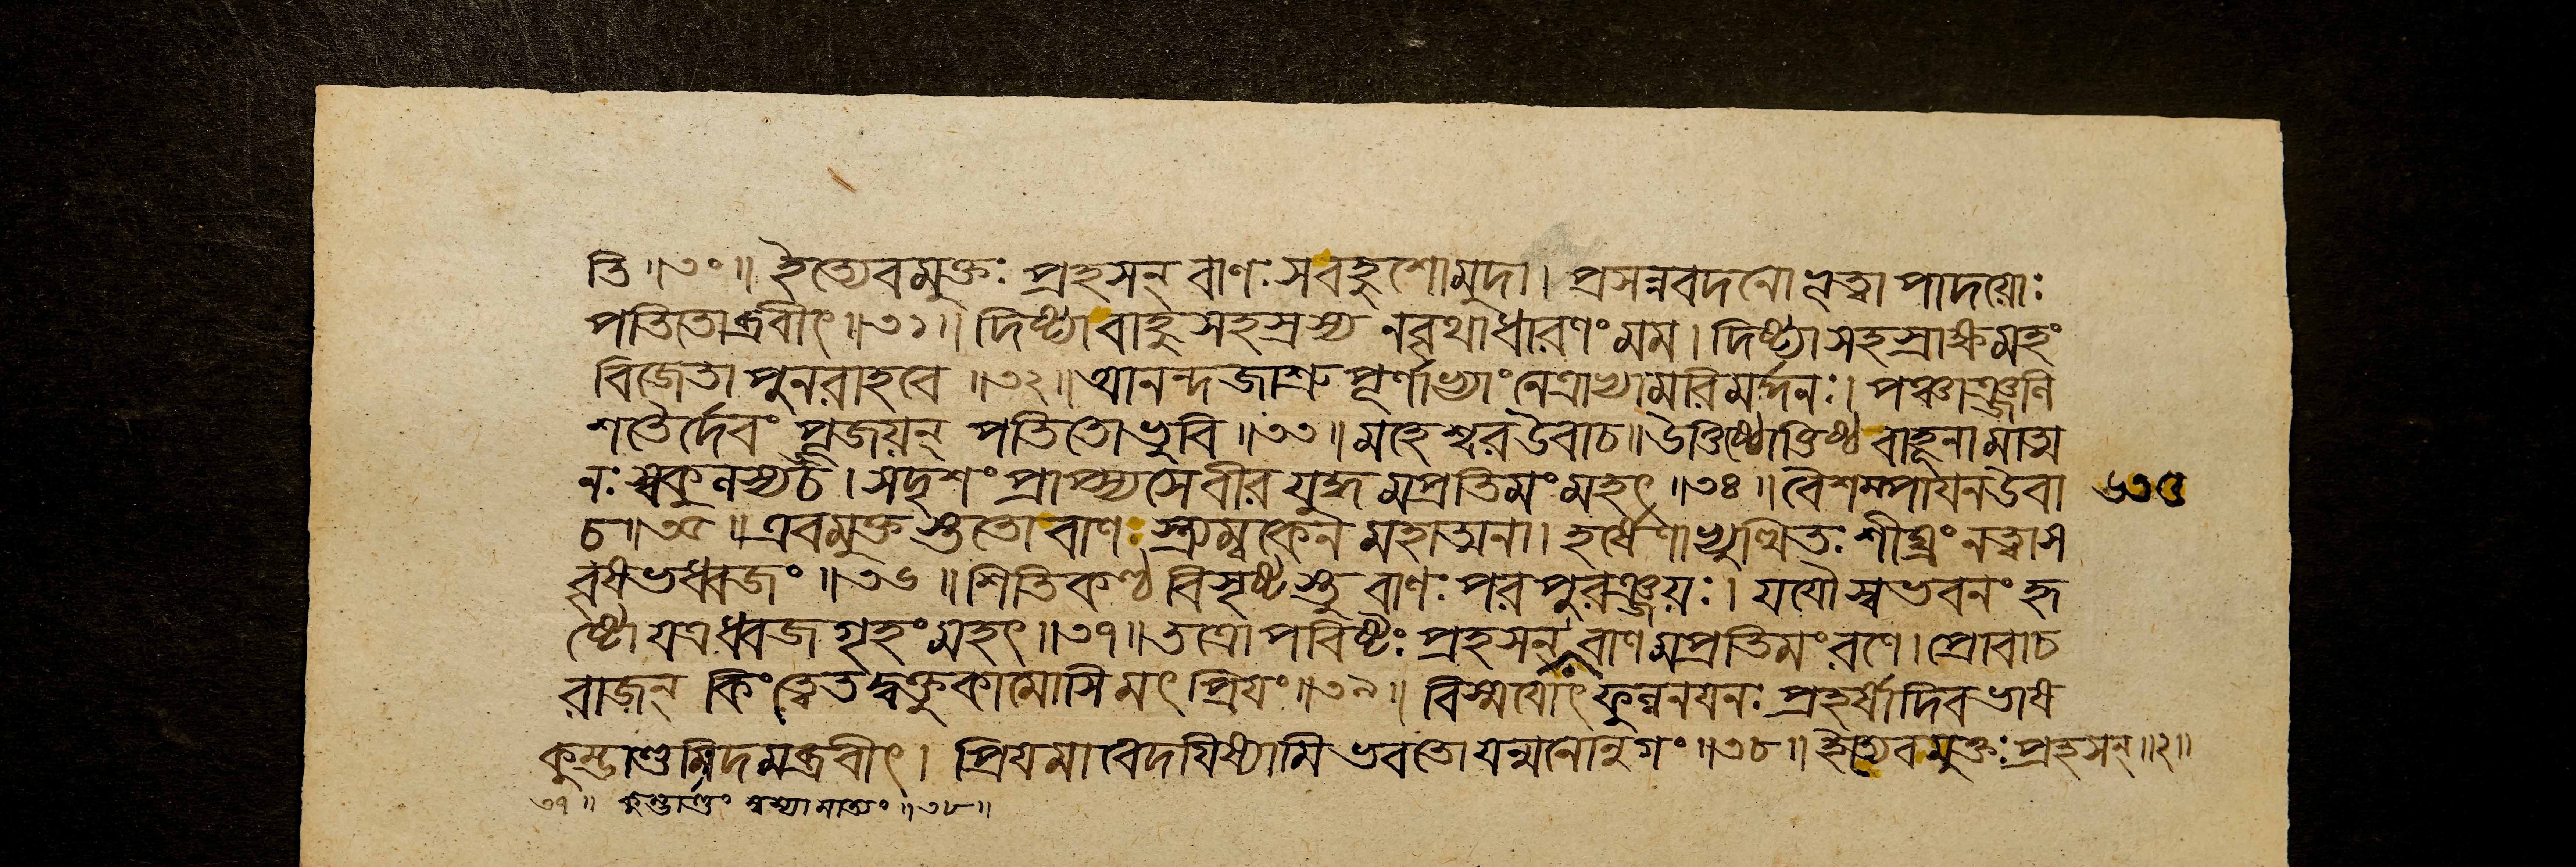 তি॥৩০॥ ইত্যেবমুক্তঃ প্রহসন্ বাণঃ সবহুশোমুদা। প্রসন্নবদনো ভূত্বা পাদয়োঃ
পতিতোব্রবীৎ॥৩১॥ দিষ্ট্যা বাহুসহস্রস্য নবৃথাধারণং মম। দিষ্ট্যা সহস্রাক্ষমহং
বিজেতা পুনরাহবে॥৩২॥ আনন্দজাশ্রুপূর্ণাভ্যাং নেত্রাভ্যামরিমর্দ্দনঃ। পঞ্চাঞ্জলি
শতৈর্দেবং পূজয়ন্ পতিতোভুবি॥৩৩॥ মহেশ্বর উবাচ॥ উত্তিষ্ঠোত্তিষ্ঠ বাহূনামাত্ম
নঃ স্বকুলস্যচ। সদৃশং প্রাপ্স্যসে বীর যুদ্ধমপ্রতিমং মহৎ॥৩৪॥ বৈশম্পায়ন উবা
চ॥৩৫॥ এবমুক্তস্ততো বাণঃ স্ত্র্যম্বকেন মহাত্মনা। হর্ষেণাভ্যুত্থিতঃ শীঘ্রং নত্বা স
বৃষভধ্বজং॥৩৬॥ শিতিকণ্ঠবিসৃষ্টস্তু বাণঃ পরপুরঞ্জয়ঃ। যযৌ স্বভবনং হৃ
ষ্টো যত্র ধ্বজগৃহং মহৎ॥৩৭॥ তত্রোপবিষ্টঃ প্রহসন্ বাণমপ্রতিমং রণে। প্রোবাচ
রাজন্ কিং ত্বেতদ্বক্তুকামোসি মৎ প্রিয়ং॥৩৯॥ বিস্ময়োৎফুল্লনয়নঃ প্রহর্ষাদিব ভাষ
কুম্ভাণ্ডমিদমব্রবীৎ। প্রিয়মাবেদয়িষ্যামি ভবতো যন্মনোনুগং॥৩৮॥ ইত্যেবমুক্তঃ প্রহসন্॥২॥
৩৭॥ কুম্ভাণ্ডং ॥৩৮॥
৬৩৫